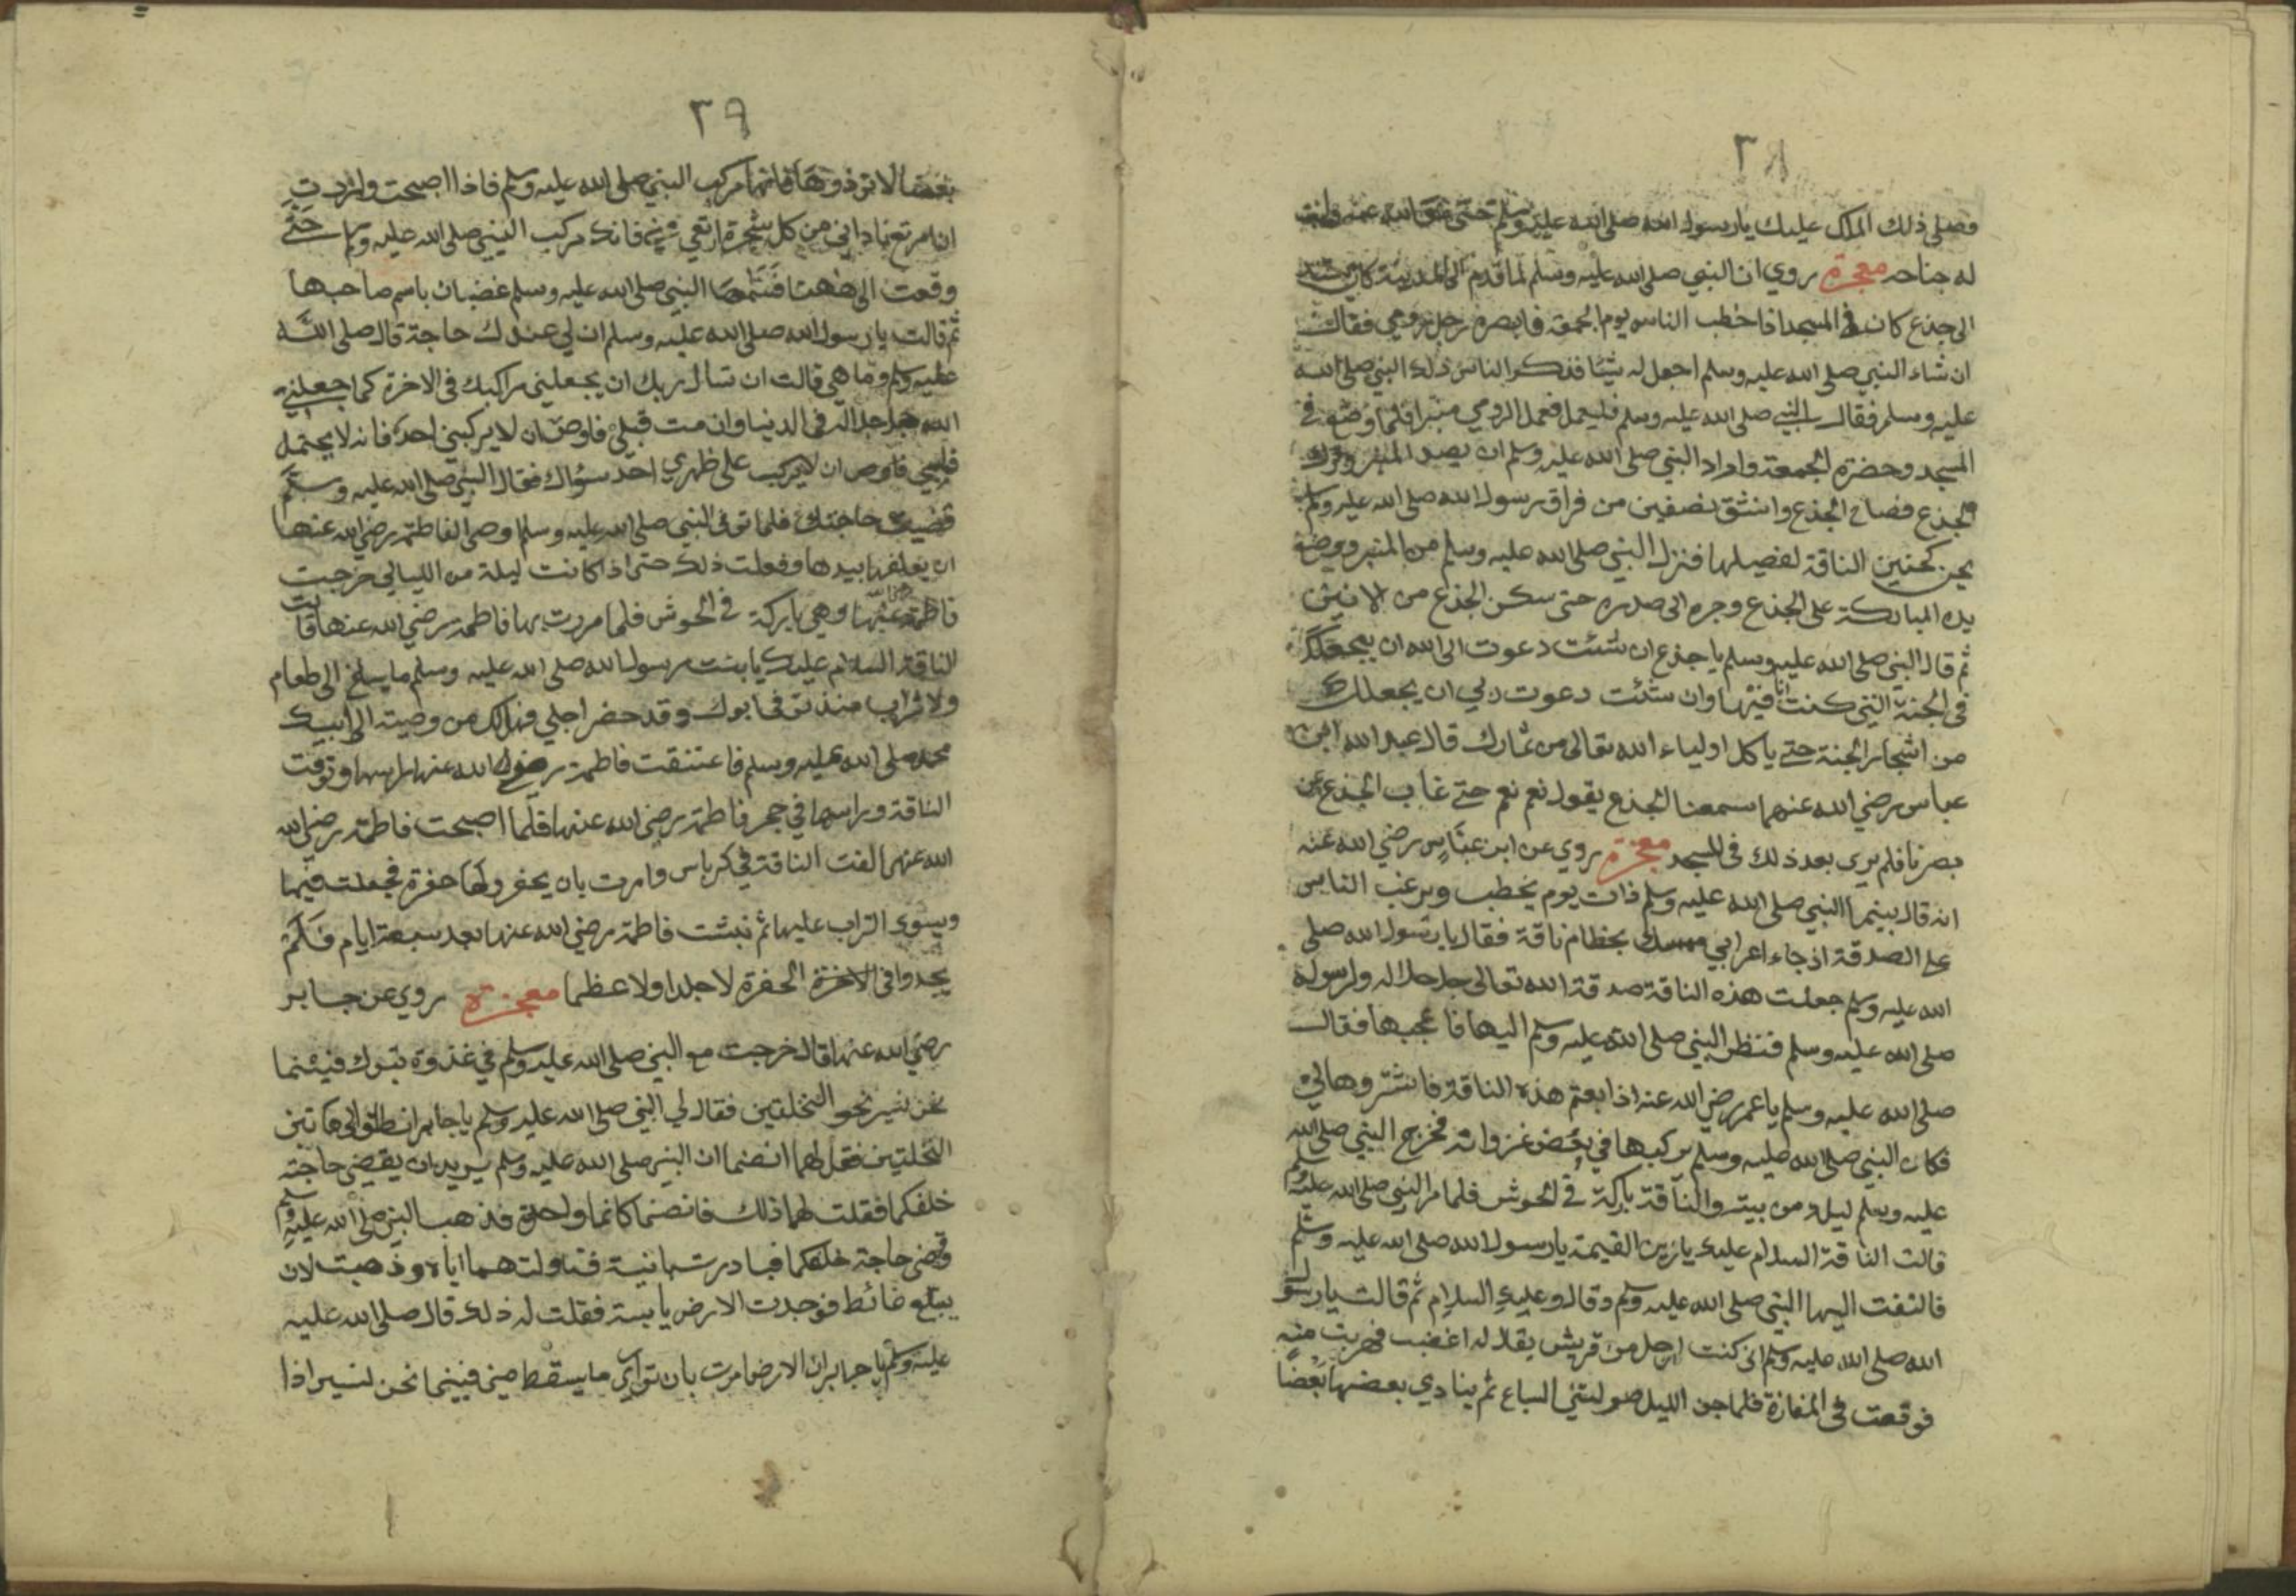 ٣٨
فصلى ذلك الملك عليك يا رسول الله صلى الله عليه وسلم حتى عفى الله عنه وانبت
له جناحه معجزة روي ان النبي صلى الله عليه وسلم لما قدم الى المدينة كان يستند
الى جذع كان في المسجد اذا خطب الناس يوم الجمعة فابصره رجل رومي فقال
ان شاء النبي صلى الله عليه وسلم اجعل له شيئا فذكر الناس ذلك النبي صلى الله
عليه وسلم فقال النبي صلى الله عليه وسلم فليعمل فعمل الرومي منبرا فلما وضع في
المسجد وحضره الجمعة واراد النبي صلى الله عليه وسلم ان يصعد المنبر وترك
الجذع فصاح الجذع وانشق نصفين من فراق رسول الله صلى الله عليه وسلم
يحن كحنين الناقة لفصيلها فنزل النبي صلى الله عليه وسلم من المنبر ووضع
يده المباركة على الجذع وجره الى صدره حتى سكن الجذع من الانين
ثم قال النبي صلى الله عليه وسلم يا جذع ان شئت دعوت الى الله ان يجعلك
في الجنة التي كنت انا فيها وان شئت دعوت ربي ان يجعلك
من اشجار الجنة حتى ياكل اولياء الله تعالى من ثمارك قال عبد الله ابن
عباس رضي الله عنهما سمعنا الجذع يقول نعم نعم حتى غاب الجذع عن
بصرنا فلم يرى بعد ذلك في المسجد معجزة روي عن ابن عباس رضي الله عنه
انه قال بينما النبي صلى الله عليه وسلم ذات يوم يخطب ويرغب الناس
على الصدقة اذ جاء اعرابي ممسك بخطام ناقة فقال يا رسول الله صلى
الله عليه وسلم جعلت هذه الناقة صدقة الله تعالى جل جلاله ولرسوله
صلى الله عليه وسلم فنظر النبي صلى الله عليه وسلم اليها فاعجبها فقال
صلى الله عليه وسلم يا عمر رضي الله عنه اذا بعتم هذه الناقة فاشتروها لي
فكان النبي صلى الله عليه وسلم يركبها في بعض غزواته فخرج النبي صلى الله
عليه وسلم ليلا من بيته والناقة باركة في الحوش فلما مر النبي صلى الله عليه وسلم
قالت الناقة السلام عليك يا زين القيمة يا رسول الله صلى الله عليه وسلم
فالتفت اليها النبي صلى الله عليه وسلم وقال وعليك السلام ثم قالت يا رسول
الله صلى الله عليه وسلم اني كنت لرجل من قريش يقال له اغضب فهربت منه
فوقعت في المفازة فلما جن الليل صولتني السباع ثم ينادي بعضها بعضا
٣٩
بعضا لا توذوها فانها مركب النبي صلى الله عليه وسلم فاذا اصبحت واردت
ان ارتع نادانى من كل شجرة ارتعي مني فانك مركب النبي صلى الله عليه وسلم حتى
وقعت الى ههنا فسماها النبي صلى الله عليه وسلم غضبان باسم صاحبها
ثم قالت يا رسول الله صلى الله عليه وسلم ان لي عندك حاجة قال صلى الله
عليه وسلم وما هي قالت ان تسال ربك ان يجعلني مراكبك في الاخرة كما جعلني
الله جل جلاله في الدنيا وان مت قبلي فاوص ان لا يركبني احد فانه لا يحتمل
قلبي فاوص ان لا يركب على ظهري احد سواك فقال النبي صلى الله عليه وسلم
قضيت حاجتك فلما توفى النبي صلى الله عليه وسلم اوصى الفاطمة رضي الله عنها
ان يعلفها بيدها وفعلت ذلك حتى اذا كانت ليلة من الليالي خرجت
فاطمة رضي الله عنها وهي باركة في الحوش فلما مررت بها فاطمة رضي الله عنها قالت
الناقة السلام عليك يا بنت رسول الله صلى الله عليه وسلم ما يسلغ الى طعام
ولا شراب منذ توفى ابوك وقد حضر اجلي فهل لك من وصيته الى ابيك
محمد صلى الله عليه وسلم فاعتنقت فاطمة رضي الله عنها براسها وتوفت
الناقة وراسها في حجر فاطمة رضي الله عنها فلما اصبحت فاطمة رضي الله
الله عنها الفت الناقة في كرباس وامرت بان يحفروا لها حفرة فجعلت فيها
ويسوى التراب عليها ثم نبشت فاطمة رضي الله عنها بعد سبعة ايام فلم
يجدوا في الاخرة الحفرة لا جلدا ولا عظما معجزة روي عن جابر
رضي الله عنها قال خرجت مع النبي صلى الله عليه وسلم في غذوة تبوك فبينما
نحن نسير نحو النخلتين فقال لي النبي صلى الله عليه وسلم يا جابر انطلق الى هاتين
النخلتين فقل لهما انضما ان النبي صلى الله عليه وسلم يريد ان يقضي حاجته
خلفكما فقلت لهما ذلك فانضما كانما واحدة فذهب النبي صلى الله عليه وسلم
وقضى حاجة خلفكما فبادرت بانية فناولتهما اياه وذهبت لان
يبتلع غائط فوجدت الارض يابسة فقلت له ذلك قال صلى الله عليه
عليه وسلم يا جابر ان الارض امرت بان توارى ما يسقط مني فبينما نحن لنسير اذا